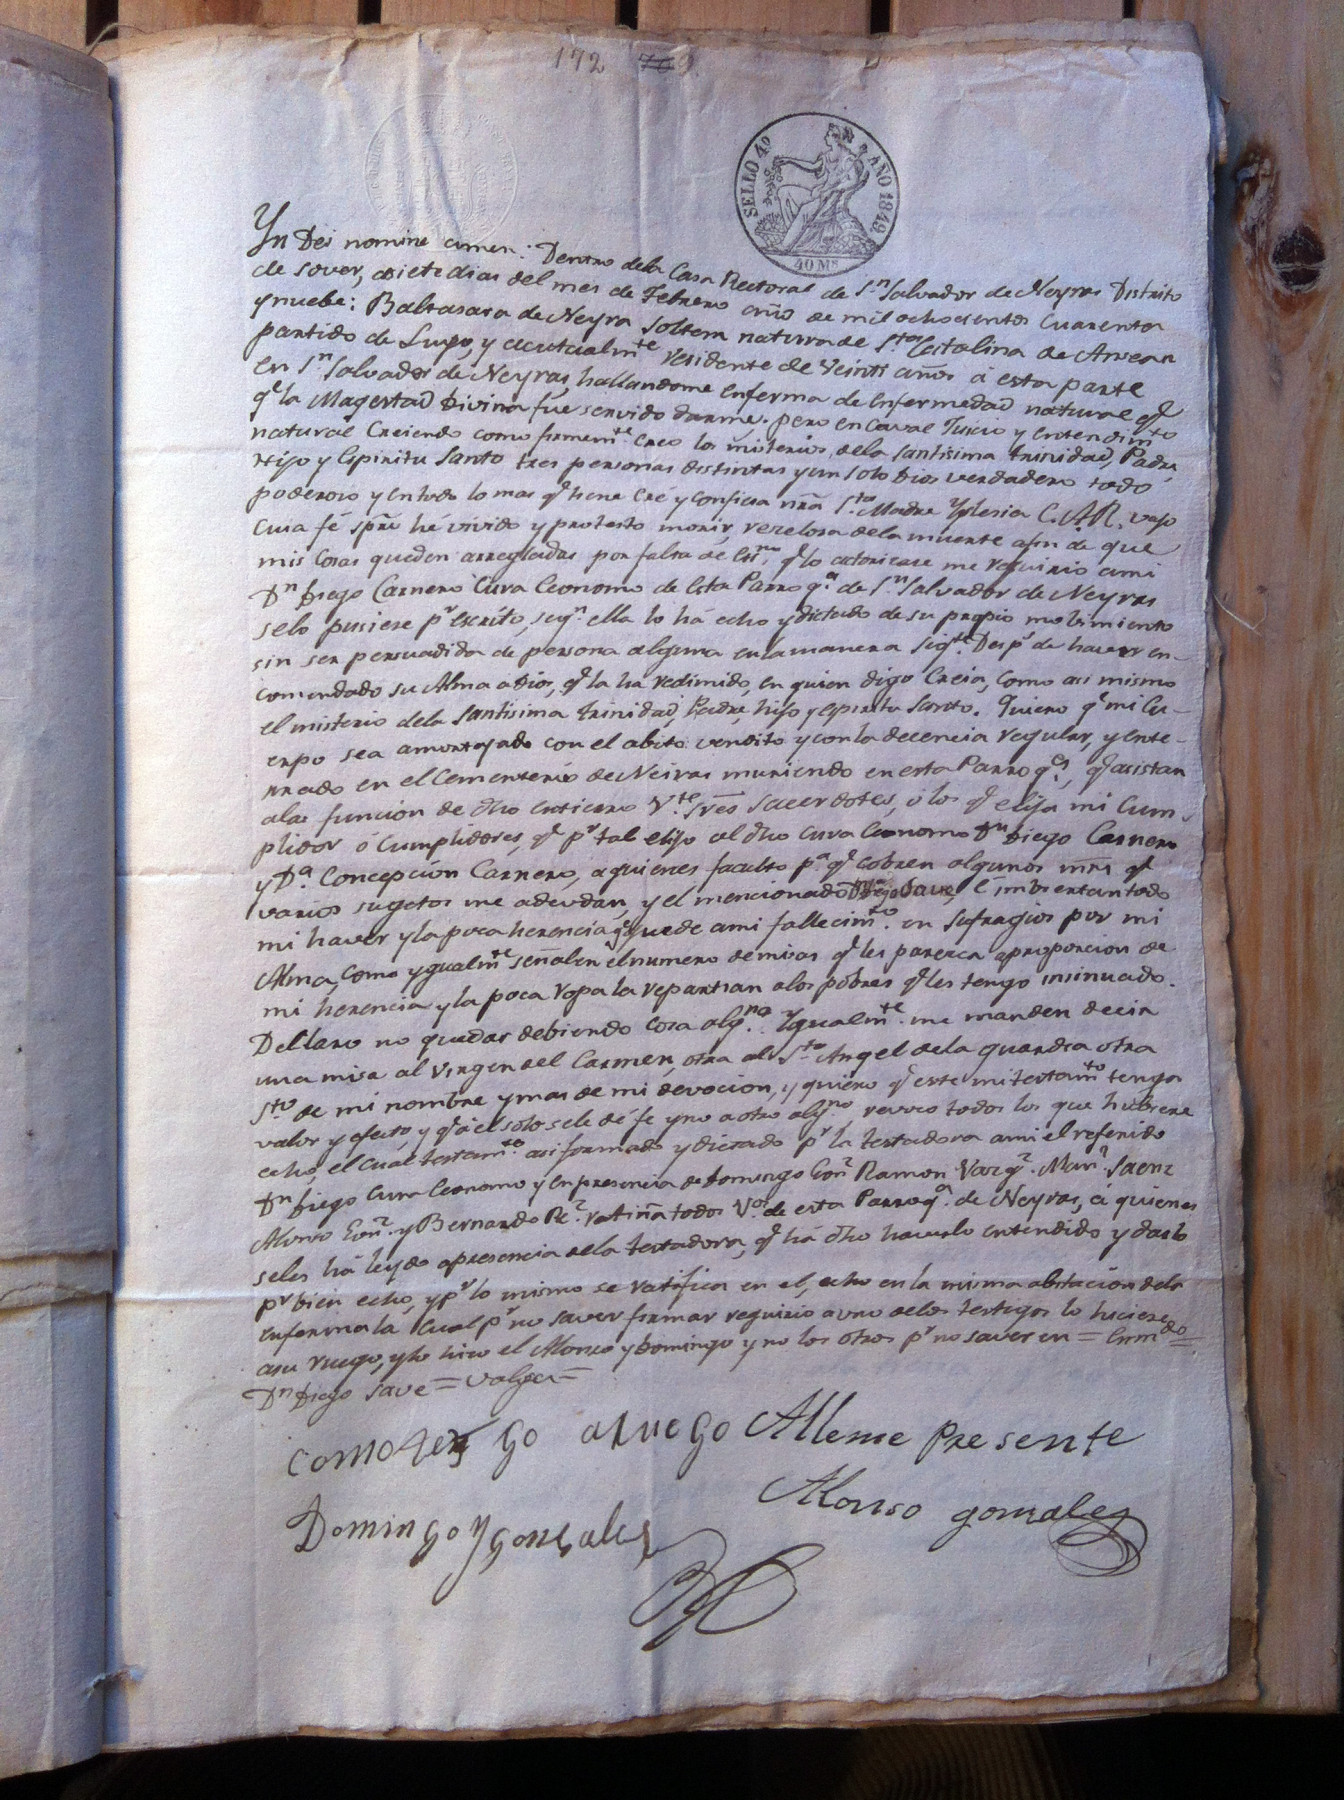 172 709
SELLO 4º AÑO 1849.
40 Ms
Yn Dei nomine amen: Dentro dela Casa Rectoral de Sn Salvador de Neyras Distrito
de Sover, asiete dias del mes de Febrero año de mil ochocientos Cuarenta
y nuebe: Baltasara de Neyra Soltera natura de Sta Catalina de Ansean
partido de Lugo, y acutualmte residente de veinti años á esta parte
en Sn Salvador de Neyras, hallandome enferma de enfermedad natural qe
qe la Magestad Divina fue servido darme. pero en Caval Juicio y entendimto
natural Creiendo como firmemte Creo los misterios dela Santisima trinidad, Padre
Hijo y Espiritu Santo tres personas distintas y un solo Dios verdadero todo
poderoso y en todo lo mas qe tiene Cré y confiesa nra Sta Madre Yglesia C. A. R. vajo
cuia fé spre hé vivido y protesto morir, rezelosa dela muerte afin de que
mis Cosas queden arregladas por falta de Esno qe lo autorizase me requirio ami
Dn Diego Carnero Cura Economo de Esta Parroqa de Sn Salvador de Neyras
selo pusiese pr escrito, segn ella lo há echo y dictado de su propio mobimiento
sin ser persuadida de persona alguna en la manera sigte Despe de haver en-
comendado su Alma a Dios, qe la ha redimido, en quien digo Creia, como asi mismo
el misterio dela Santisima trinidad, Padre, hijo y espiritu Santo. Quiero qe mi Cu-
erpo sea amortajado con el abito vendito y con la decencia regular, y ente-
rrado en el Cementerio de Neiras muriendo en esta Parroqa, qe asistan
alas funcion de dho entierro Vte sres Sacerdotes, ó los qe elija mi Cum-
plidor ó Cumplidores, qe pr tal elijo al dho Cura Economo Dn Diego Carnero
y Da Concepción Carnero, a quienes faculto pa qe cobren algunos mrs qe
varios sugetos me adeudan, y el mencionado Dn Diego Save, é imbiertan todo
mi haver y la poca herencia qe quede ami fallecimto en sufragios por mi
Alma, Como ygualmte señalen el numero de misas qe les parezca aproporcion de
mi herencia y la poca ropa la repartian alos pobres qe les tengo insinuado.
Declaro no quedar debiendo cosa algna. Ygualmte me manden decir
una misa al Virgen del Carmen, otra al Sto Angel dela guarda otra
Sto de mi nombre y mas de mi devocion, y quiero qe este mi testamto tenga
valor y efecto, y qe á él solo sele dé fe y no a otro algno revoco todos los que hubiere
echo, el cual testamto asi formado y dictado pr la testadora ami el referido
Dn Diego Cura Economo y en presencia de Domingo Gonz Ramon Vazqz. Manl Saenz
Alonso Gonz. y Bernardo Rz. ratiña todos Vos de esta Parroqa. de Neyras, á quienes
seles há leydo apresencia dela testadora, qe há dho haverlo entendido y darlo
pr bien echo, y pr lo mismo se ratifica en el, echo en la misma abitacion dela
enferma la Cual pr no saver firmar requirio auno delos testigos lo hiciese
asu ruego, y lo hizo el Alonso y Domingo y no los otros pr no saver en = Enmdo =
Dn Diego Save = valga =
como tesgo aruego Alleme Presente
Alonso gonzalez
Domingo Y gonzales